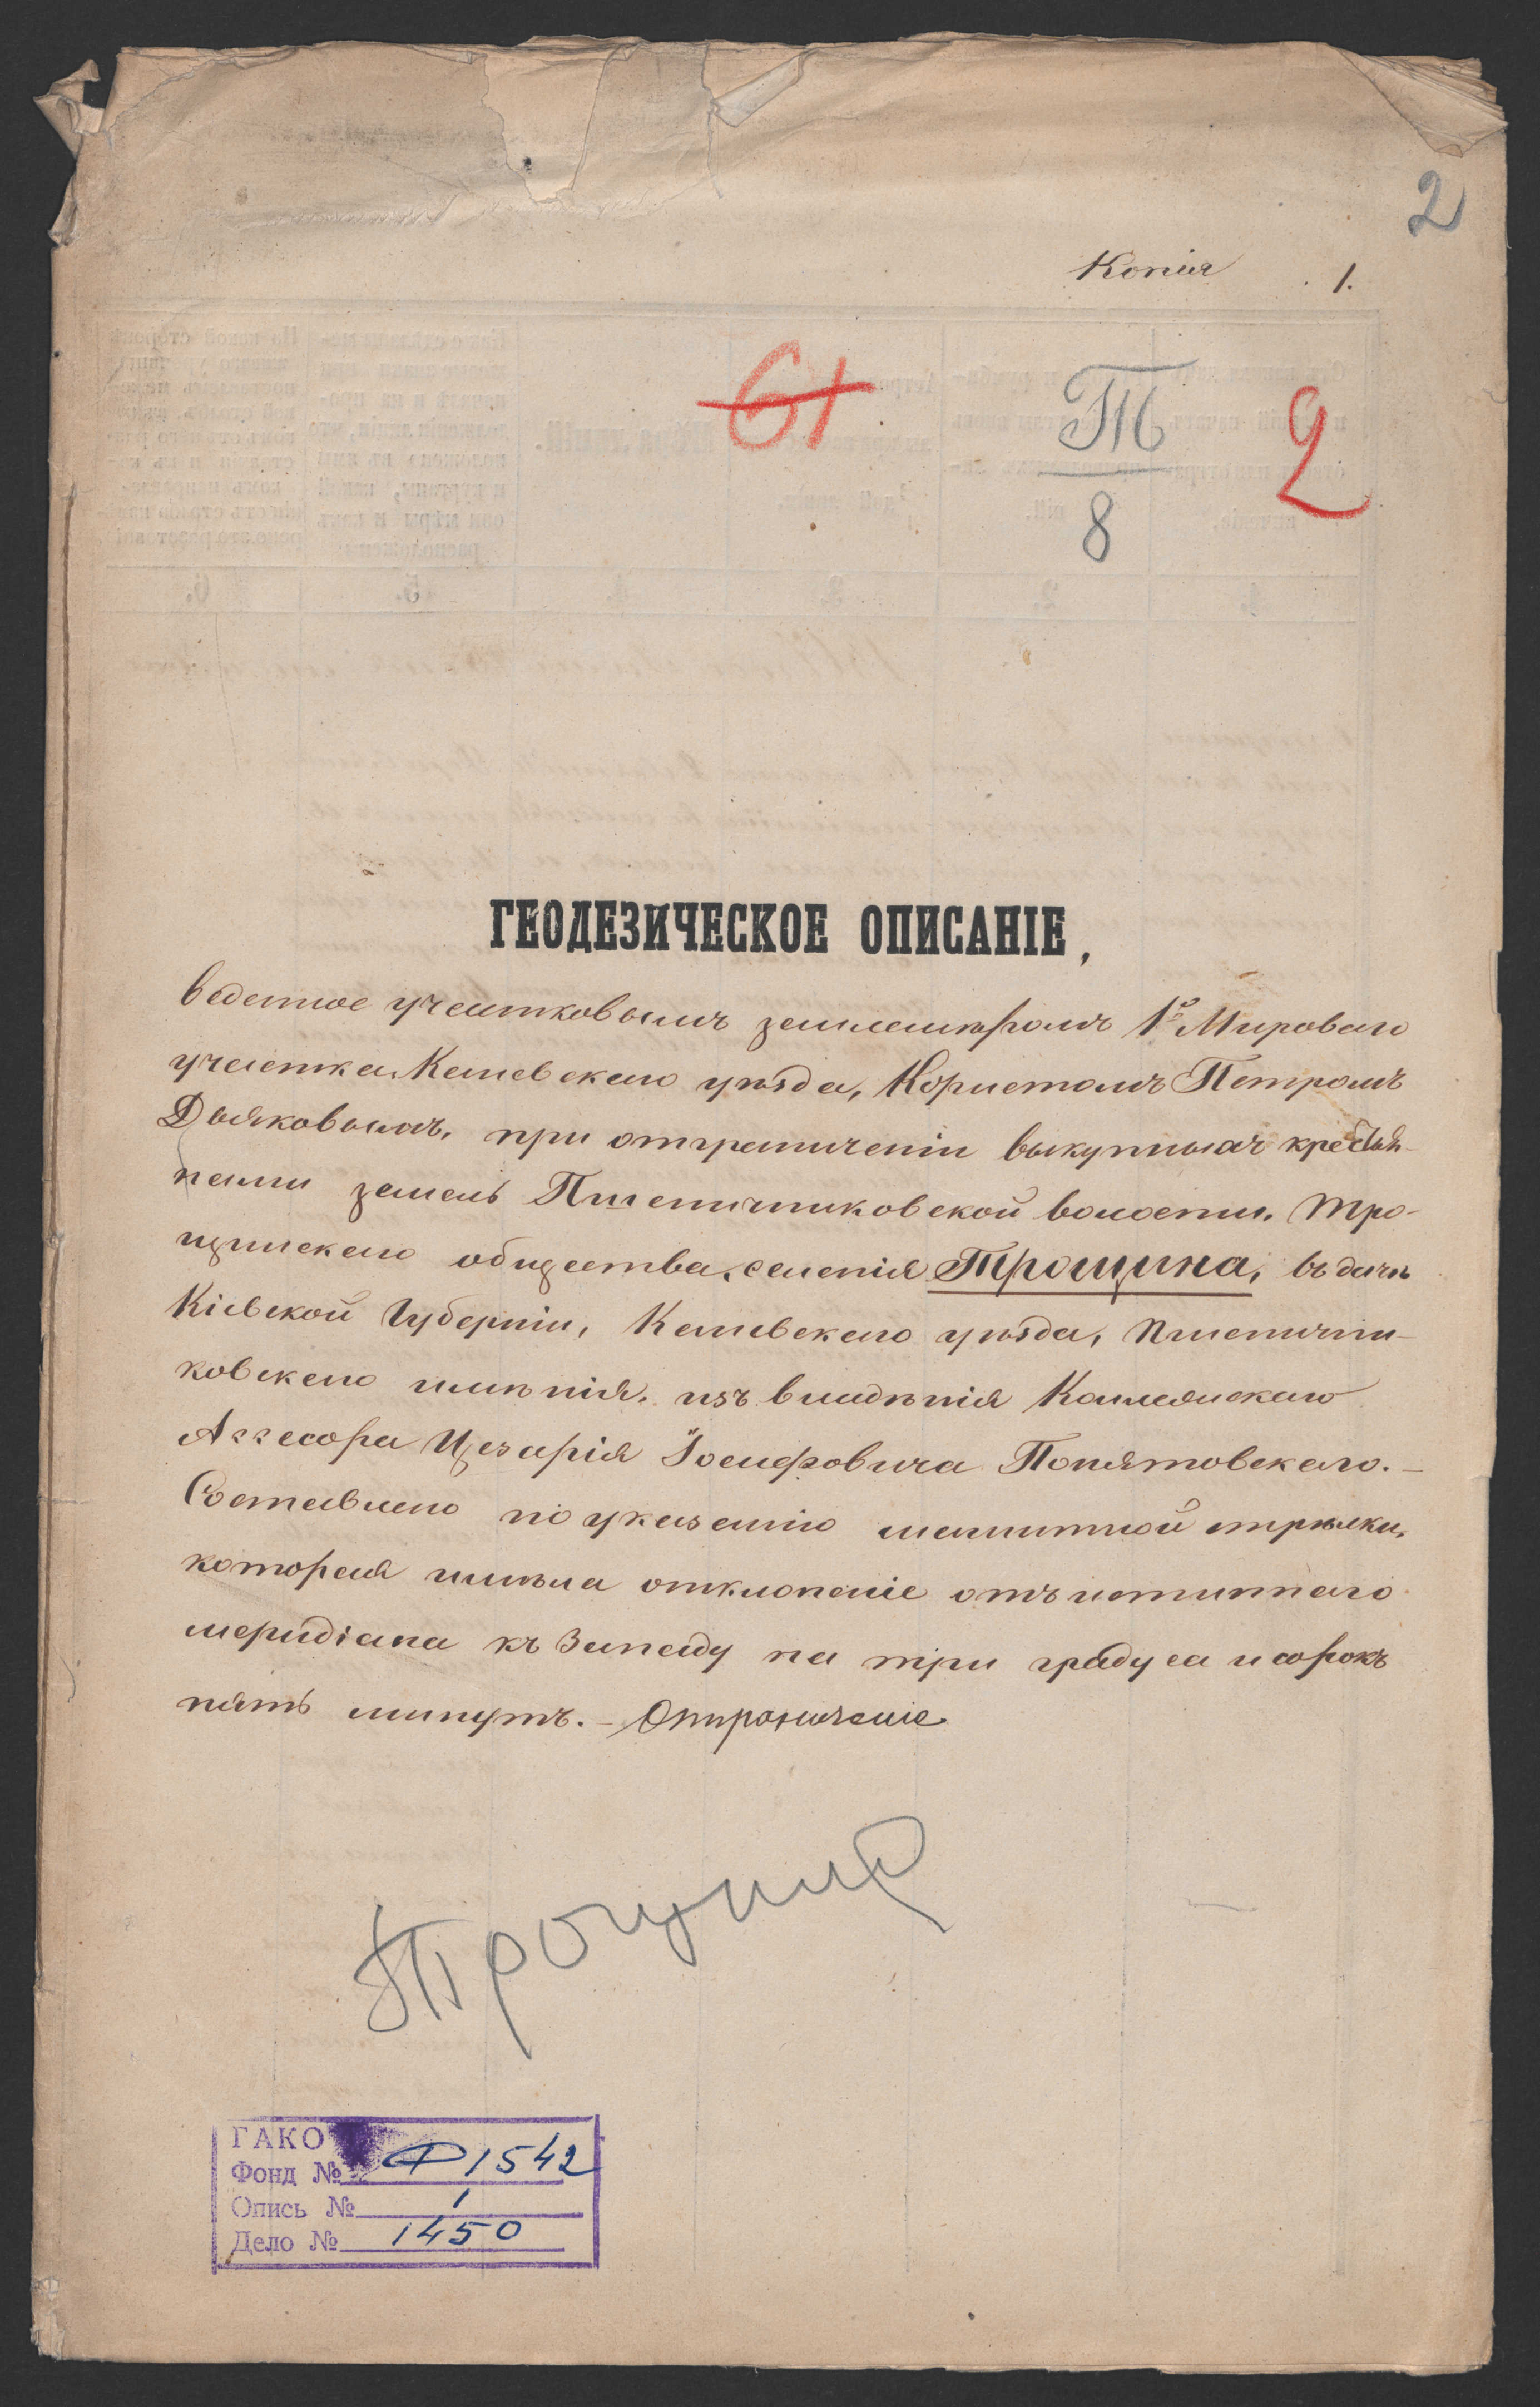 2
Копія 1.
61
Т
8
2
ГЕОДЕЗИЧЕСКОЕ ОПИСАНІЕ,
веденное участковымъ землемѣромъ 1го Мироваго
участка, Каневскаго уѣзда, Корнетомъ Петромъ
Дьяковымъ, при отграниченіи выкупныхъ крестья-
нами земель Пшеничниковской волости, Тро-
щинскаго общества, селенія Трощина, въ дачѣ
Кіевской Губерніи, Каневскаго уѣзда, Пшенични-
ковскаго имѣнія, изъ владѣнія Коллежскаго
Ассесора Цезарія Іосифовича Понятовскаго.—
Составлено по указанію магнитной стрѣлки,
которая имѣла отклоненіе отъ истиннаго
меридіана къ Западу на три градуса и сорокъ
пять минутъ.— Отграниченіе
Трощина
ГАКО
Фонд № Ф 1542
Опись № 1
Дело № 1450